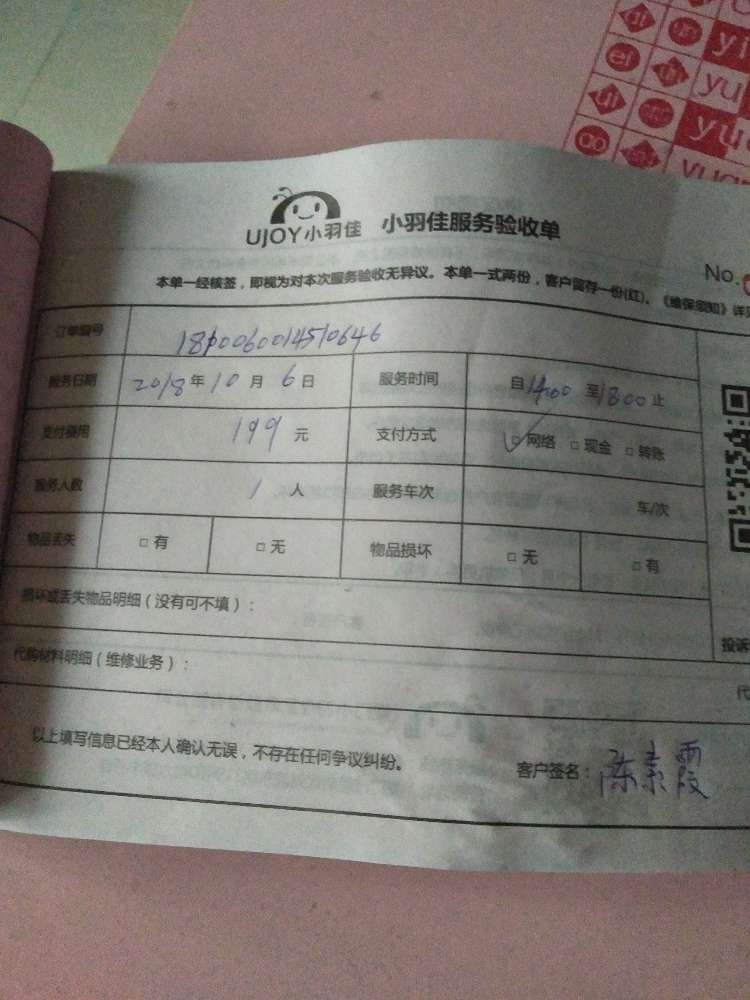 ui
yi
ei
yu
ui
ao
yu
yuan
UJOY小羽佳 小羽佳服务验收单
No.
本单一经核签，即视为对本次服务验收无异议。本单一式两份，客户留存一份(红)。《维保须知》详见
订单编号
服务日期 2018年10月6日 服务时间 自1400至1800止
支付费用 199元 支付方式 ☑网络 □现金 □转账
服务人数 1人 服务车次 车/次
物品丢失 □有 □无 物品损坏 □无 □有
损坏或丢失物品明细（没有可不填）：
投诉
代购材料明细（维修业务）：
代
以上填写信息已经本人确认无误，不存在任何争议纠纷。
客户签名：陈素霞